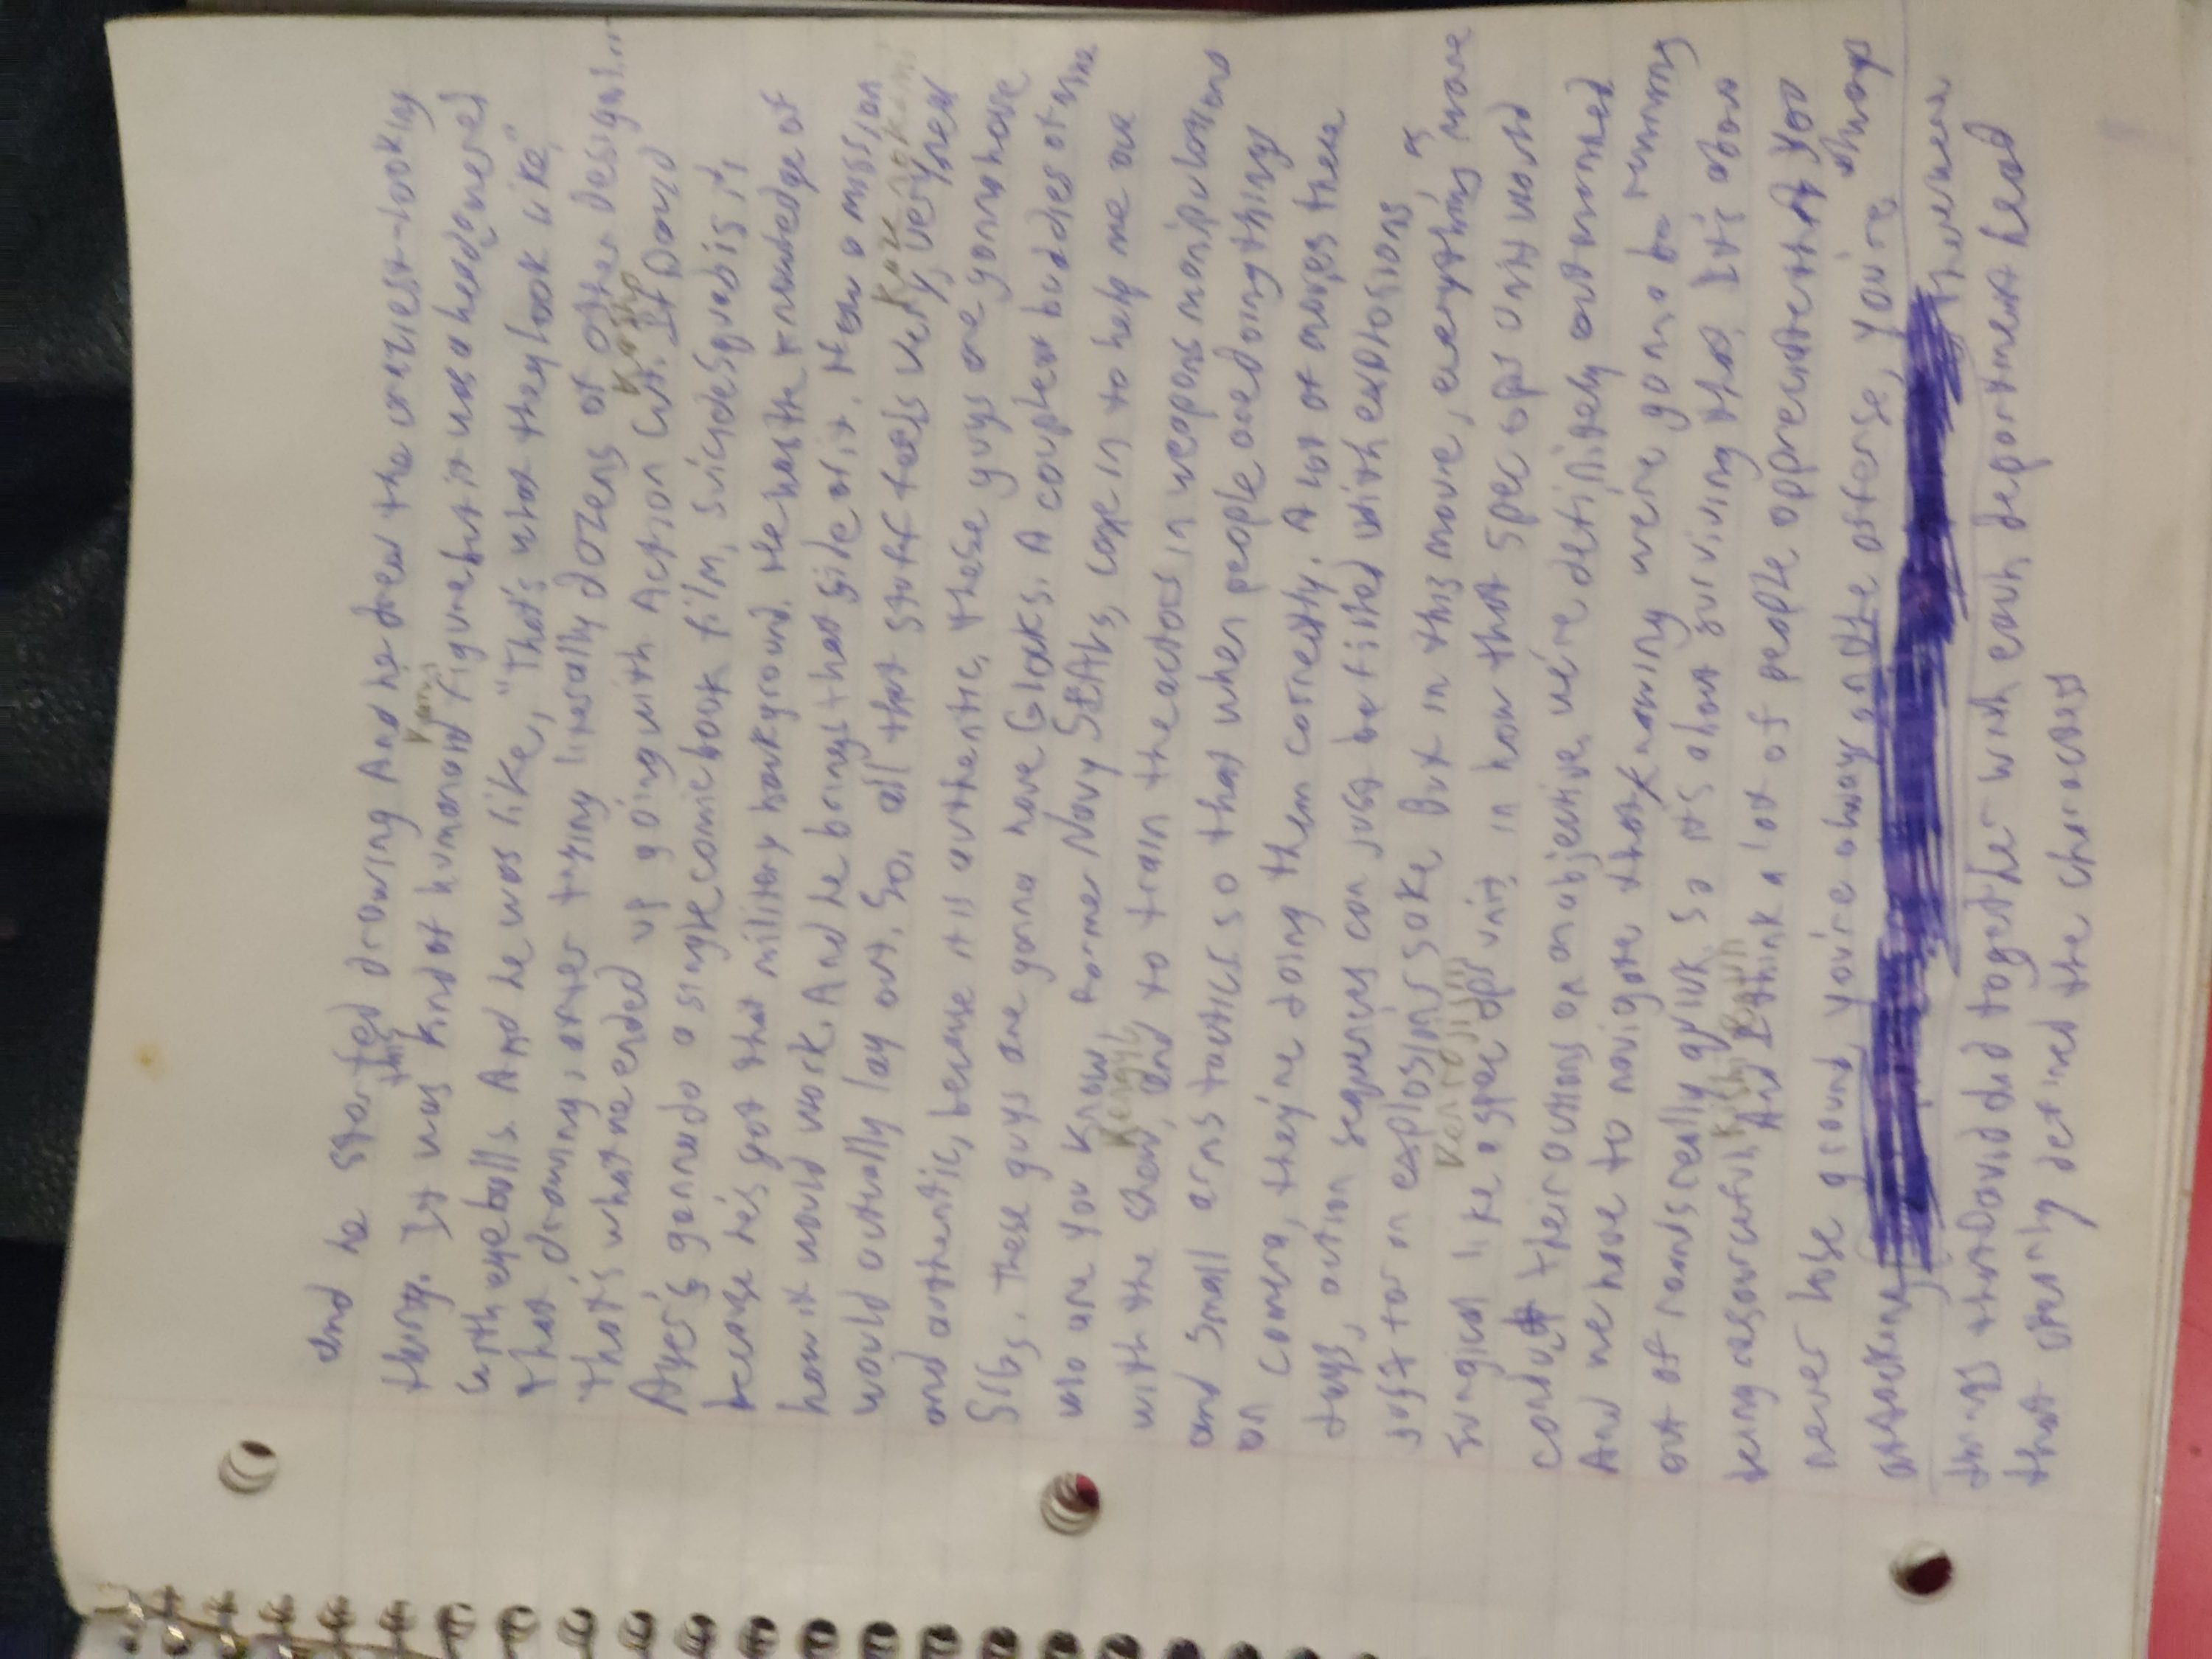 and he started drawing And he drew the craziest-looking
thing. It was this kind of humanoid figure but it was a head covered
with eyeballs. And he was like, "That's what they look like,"
That drawing, after trying literally dozens of other designs...
that's what we ended up going with Action Cut. If David
Ayer's gonna do a single comic book film, suicide squad is it,
because he's got that military background. He has the knowledge of
how it would work. And he brings that side of it. How a mission
would actually lay out. So, all that stuff feels very, very real
and authentic, because it is authentic, these guys are gonna have
SIGs. These guys are gonna have Glocks. A couple of buddies of mine
who are you know, former Navy SEALs, came in to help me out
with the show, and to train the actors in weapons manipulations
and small arms tactics so that when people are doing things
on camera, they're doing them correctly. A lot of movies these
days, action sequences can just be filled with explosions
just for an explosions sake But in this movie, everything more
surgical like a spec ops unit, in how that spec ops unit would
conduct their actions on an objective, we're definitely outmanned
And we have to navigate that knowing we're gonna be running
out of rounds really quick So it's about surviving that. It's about
being resourceful And I think a lot of people appreciate that you
never lose ground, you're always on the offense, you're always
attacking There were
things that David did together with each department head
that really defined the characters